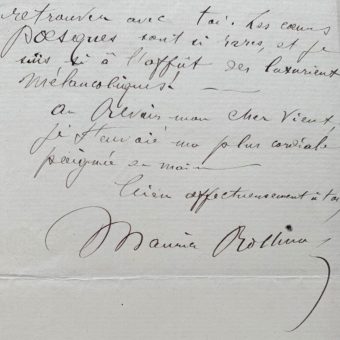 retrouver avec toi. Les cœurs
poësques sont si rares, et je
suis si à l'affût des
mélancoliques!
au Revoir mon cher vieux,
je t'envoie ma plus cordiale
poignée de main
bien affectueusement à toi,
Maurice Rollinat